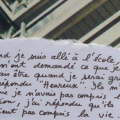 nd je suis allé à l'école,
m'ont demandé ce que je
lais être quand je serai gran
répondu "Heureux". Ils m
je n'avais pas compris
ion, j'ai répondu qu'ils
ent pas compris la vie